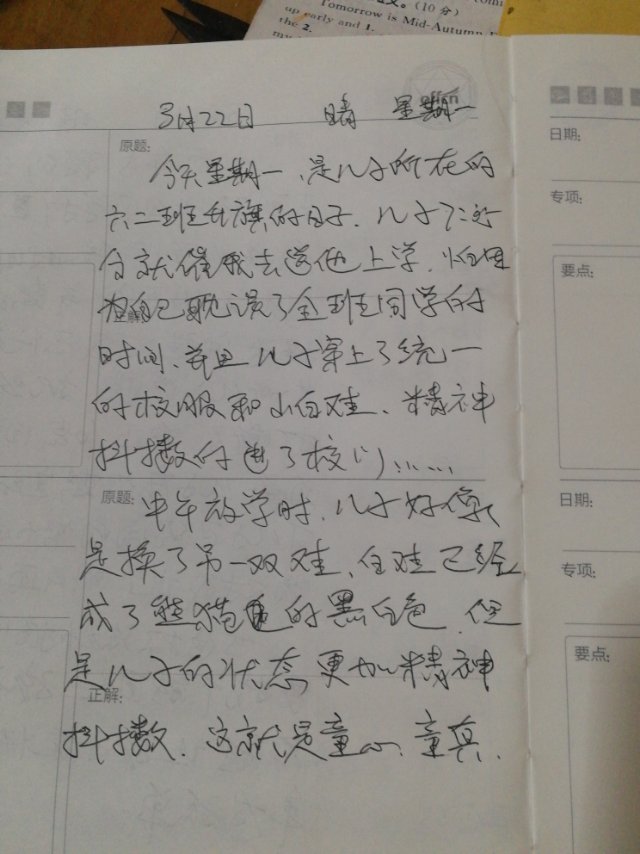 。(10分)
Tomorrow is Mid-Autumn
up early and 1.
the 2.
offcn
3月22日 晴 星期一
日期:
原题:
今天星期一,是儿子所在的
专项:
六二班升旗的日子.儿子7:20
分就催我去送他上学,怕因
要点:
为自己耽误了全班同学的
正解:
时间、并且儿子穿上了统一
的校服和小白鞋、精神
抖擞的进了校门……
原题:
中午放学时,儿子好像
日期:
是换了另一双鞋、白鞋已经
专项:
成了熊猫的黑白色.但
是儿子的状态更加精神
要点:
正解:
抖擞.这就是童心、童真.